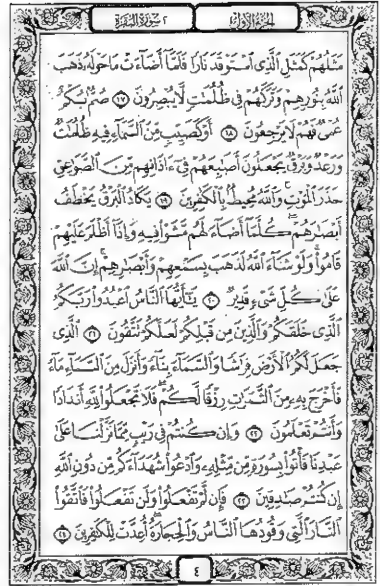 الجزء الأول
٢ سورة البقرة
مَثَلُهُمْ كَمَثَلِ ٱلَّذِى ٱسْتَوْقَدَ نَارًا فَلَمَّآ أَضَآءَتْ مَا حَوْلَهُۥ ذَهَبَ
ٱللَّهُ بِنُورِهِمْ وَتَرَكَهُمْ فِى ظُلُمَٰتٍ لَّا يُبْصِرُونَ ١٧ صُمٌّۢ بُكْمٌ
عُمْىٌ فَهُمْ لَا يَرْجِعُونَ ١٨ أَوْ كَصَيِّبٍ مِّنَ ٱلسَّمَآءِ فِيهِ ظُلُمَٰتٌ
وَرَعْدٌ وَبَرْقٌ يَجْعَلُونَ أَصَٰبِعَهُمْ فِىٓ ءَاذَانِهِم مِّنَ ٱلصَّوَٰعِقِ
حَذَرَ ٱلْمَوْتِ وَٱللَّهُ مُحِيطٌۢ بِٱلْكَٰفِرِينَ ١٩ يَكَادُ ٱلْبَرْقُ يَخْطَفُ
أَبْصَٰرَهُمْ كُلَّمَآ أَضَآءَ لَهُم مَّشَوْا۟ فِيهِ وَإِذَآ أَظْلَمَ عَلَيْهِمْ
قَامُوا۟ وَلَوْ شَآءَ ٱللَّهُ لَذَهَبَ بِسَمْعِهِمْ وَأَبْصَٰرِهِمْ إِنَّ ٱللَّهَ
عَلَىٰ كُلِّ شَىْءٍ قَدِيرٌ ٢٠ يَٰٓأَيُّهَا ٱلنَّاسُ ٱعْبُدُوا۟ رَبَّكُمُ
ٱلَّذِى خَلَقَكُمْ وَٱلَّذِينَ مِن قَبْلِكُمْ لَعَلَّكُمْ تَتَّقُونَ ٢١ ٱلَّذِى
جَعَلَ لَكُمُ ٱلْأَرْضَ فِرَٰشًا وَٱلسَّمَآءَ بِنَآءً وَأَنزَلَ مِنَ ٱلسَّمَآءِ مَآءً
فَأَخْرَجَ بِهِۦ مِنَ ٱلثَّمَرَٰتِ رِزْقًا لَّكُمْ فَلَا تَجْعَلُوا۟ لِلَّهِ أَندَادًا
وَأَنتُمْ تَعْلَمُونَ ٢٢ وَإِن كُنتُمْ فِى رَيْبٍ مِّمَّا نَزَّلْنَا عَلَىٰ
عَبْدِنَا فَأْتُوا۟ بِسُورَةٍ مِّن مِّثْلِهِۦ وَٱدْعُوا۟ شُهَدَآءَكُم مِّن دُونِ ٱللَّهِ
إِن كُنتُمْ صَٰدِقِينَ ٢٣ فَإِن لَّمْ تَفْعَلُوا۟ وَلَن تَفْعَلُوا۟ فَٱتَّقُوا۟
ٱلنَّارَ ٱلَّتِى وَقُودُهَا ٱلنَّاسُ وَٱلْحِجَارَةُ أُعِدَّتْ لِلْكَٰفِرِينَ ٢٤
٤